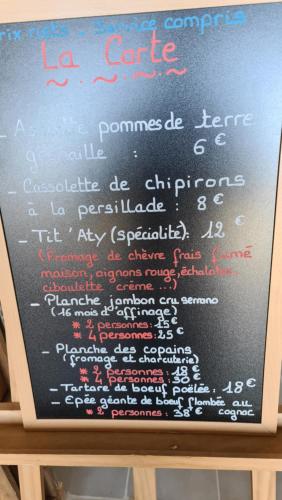 Prix nets - Service compris
La Carte
- Assiette pommes de terre
grenaille : 6 €
- Cassolette de chipirons
à la persillade : 8 €
- Tit'Aty (spécialité): 12 €
(Fromage de chèvre frais fumé
maison, oignons rouge, échalotes,
ciboulette crème...)
- Planche jambon cru serrano
(16 mois d'affinage)
* 2 personnes: 15 €
* 4 personnes: 25 €
- Planche des copains
(fromage et charcuterie)
* 2 personnes: 18 €
* 4 personnes: 30 €
- Tartare de boeuf poêlée : 18 €
- Epée géante de boeuf flambée au
* 2 personnes: 38 € cognac